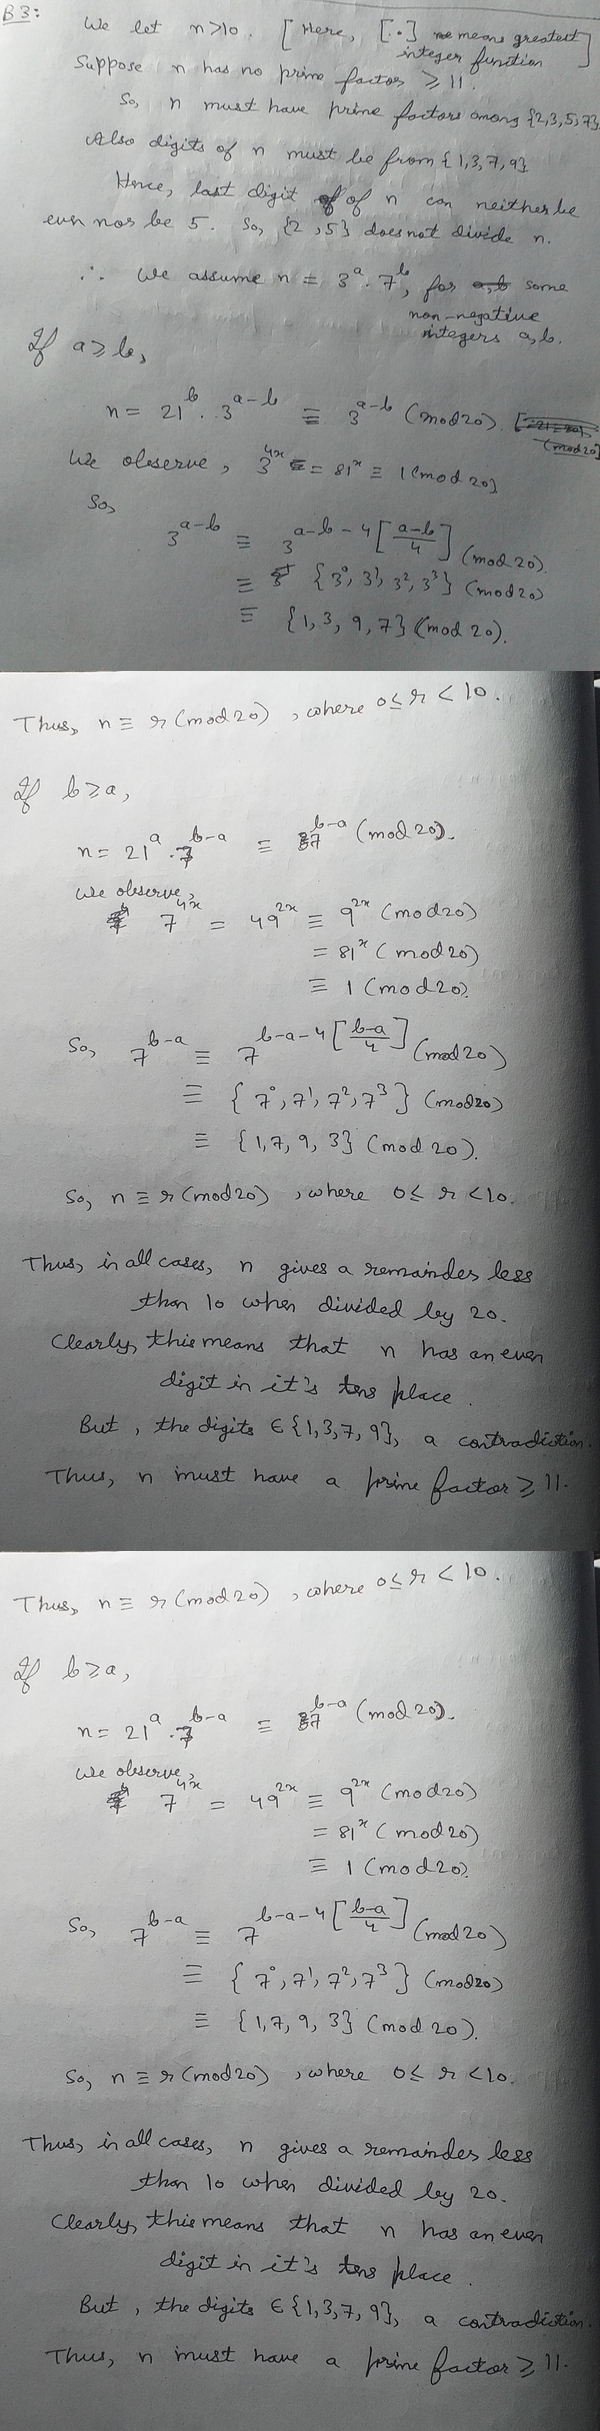 B3:
We let n>10. [Here, [..] means greatest integer function]
Suppose n has no prime factor ≥ 11.
So, n must have prime factors among {2,3,5,7}.
Also digits of n must be from {1,3,7,9}
Hence, last digit of n can neither be
even nor be 5. So, {2,5} does not divide n.
∴ We assume n = 3^a · 7^b, for some
non-negative
integers a,b.
If a ≥ b,
n = 21^b · 3^{a-b} ≡ 3^{a-b} (mod 20).
We observe, 3^{4x} = 81^x ≡ 1 (mod 20)
So,
3^{a-b} ≡ 3^{a-b-4[(a-b)/4]} (mod 20).
≡ {3^0, 3^1, 3^2, 3^3} (mod 20)
≡ {1, 3, 9, 7} (mod 20).
Thus, n ≡ r (mod 20), where 0 ≤ r < 10.
If b ≥ a,
n = 21^a · 7^{b-a} ≡ 7^{b-a} (mod 20).
We observe,
7^{4x} = 49^{2x} ≡ 9^{2x} (mod 20)
= 81^x (mod 20)
≡ 1 (mod 20).
So, 7^{b-a} ≡ 7^{b-a-4[(b-a)/4]} (mod 20)
≡ {7^0, 7^1, 7^2, 7^3} (mod 20)
≡ {1, 7, 9, 3} (mod 20).
So, n ≡ r (mod 20), where 0 ≤ r < 10.
Thus, in all cases, n gives a remainder less
than 10 when divided by 20.
Clearly, this means that n has an even
digit in it's tens place.
But, the digits ∈ {1,3,7,9}, a contradiction.
Thus, n must have a prime factor ≥ 11.
Thus, n ≡ r (mod 20), where 0 ≤ r < 10.
If b ≥ a,
n = 21^a · 7^{b-a} ≡ 7^{b-a} (mod 20).
We observe,
7^{4x} = 49^{2x} ≡ 9^{2x} (mod 20)
= 81^x (mod 20)
≡ 1 (mod 20).
So, 7^{b-a} ≡ 7^{b-a-4[(b-a)/4]} (mod 20)
≡ {7^0, 7^1, 7^2, 7^3} (mod 20)
≡ {1, 7, 9, 3} (mod 20).
So, n ≡ r (mod 20), where 0 ≤ r < 10.
Thus, in all cases, n gives a remainder less
than 10 when divided by 20.
Clearly, this means that n has an even
digit in it's tens place.
But, the digits ∈ {1,3,7,9}, a contradiction.
Thus, n must have a prime factor ≥ 11.